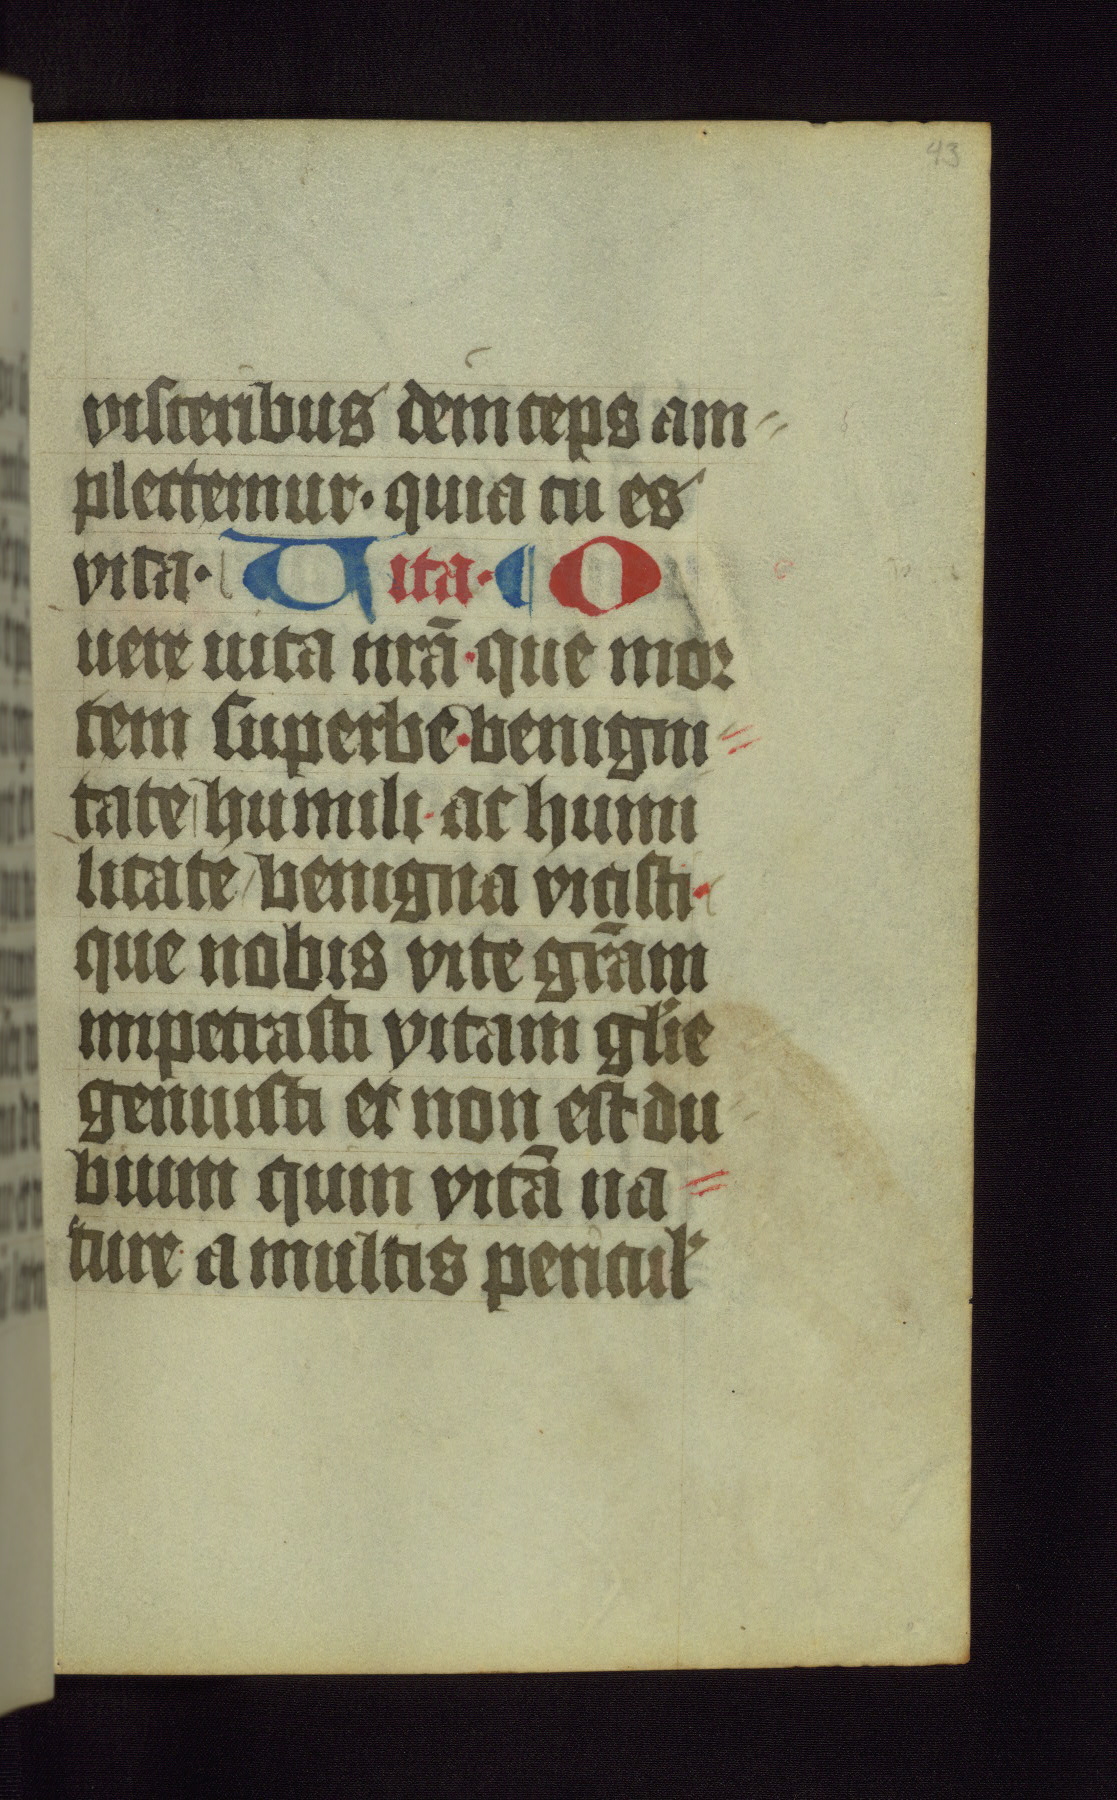 43
visceribus deinceps am〃
plectemur. quia tu es
vita. Uita. ¶ O
uere uita nr̄a. que mor
tem superbe. benigni〃
tate humili. ac humi
litate benigna vicisti.
que nobis vite gr̄am
impetrasti vitam gl̄ie
genuisti et non est du〃
bium quin vitā na〃
ture a multis pericul̕